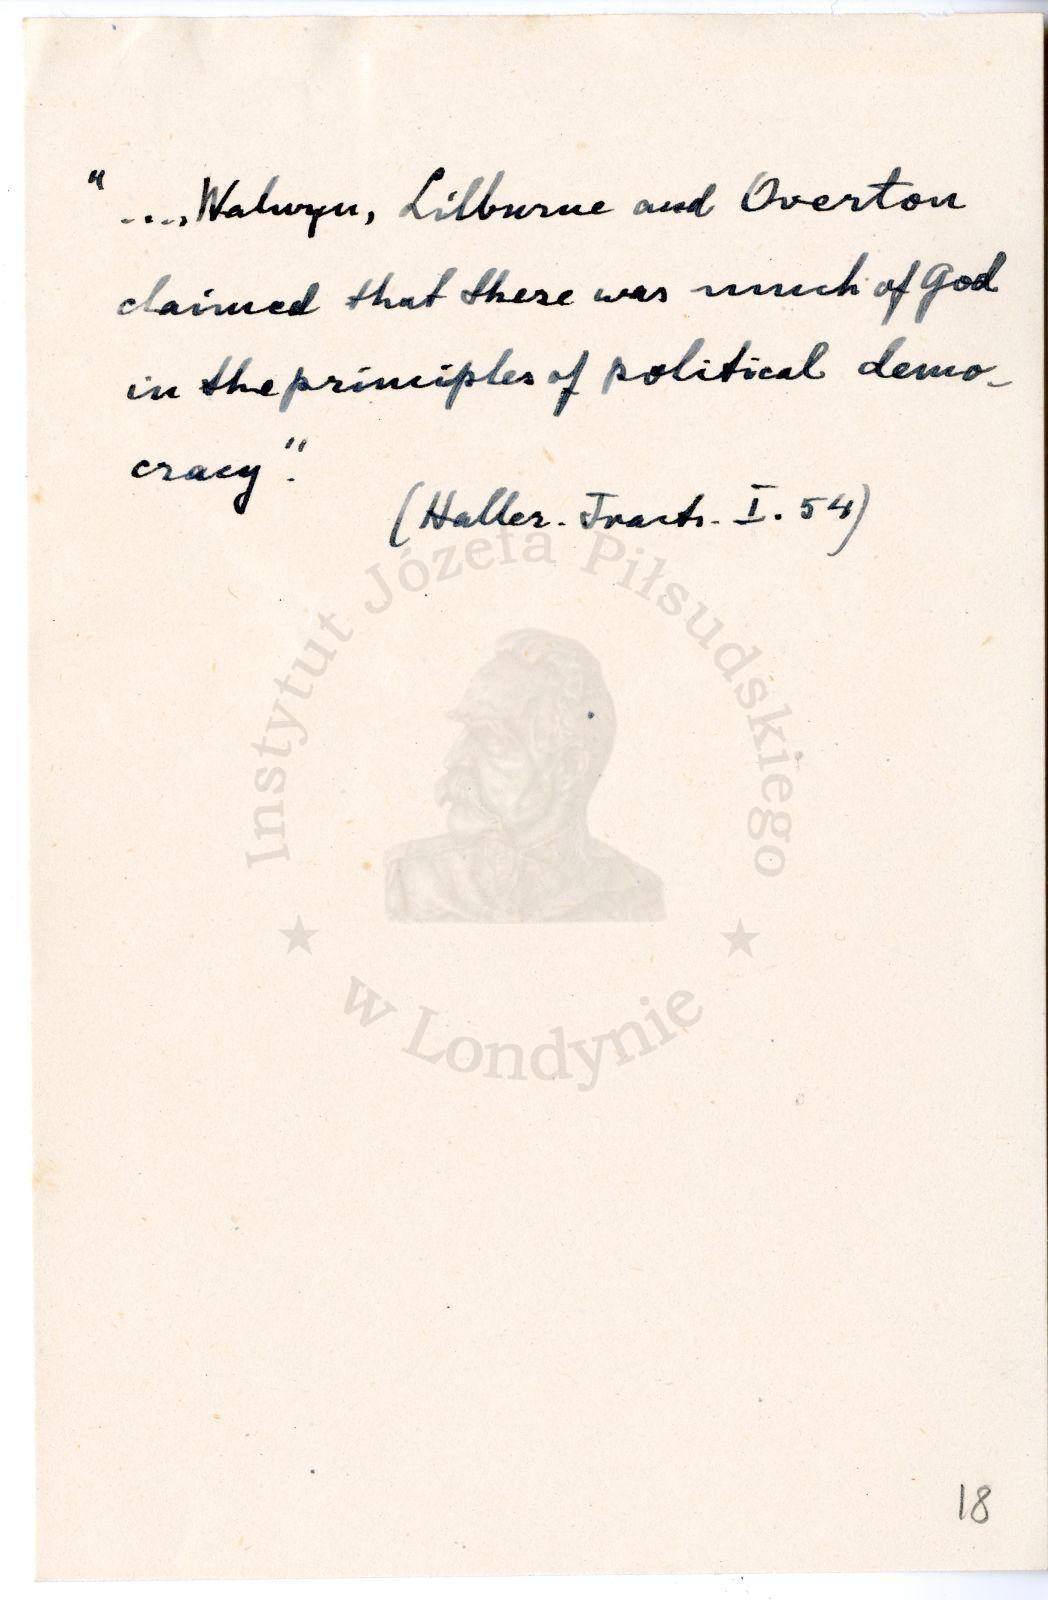 "..., Walwyn, Lilburne and Overton
claimed that there was much of God
in the principles of political demo-
cracy".
(Haller. Tracts. I. 54)
Instytut Józefa Piłsudskiego
w Londynie
18